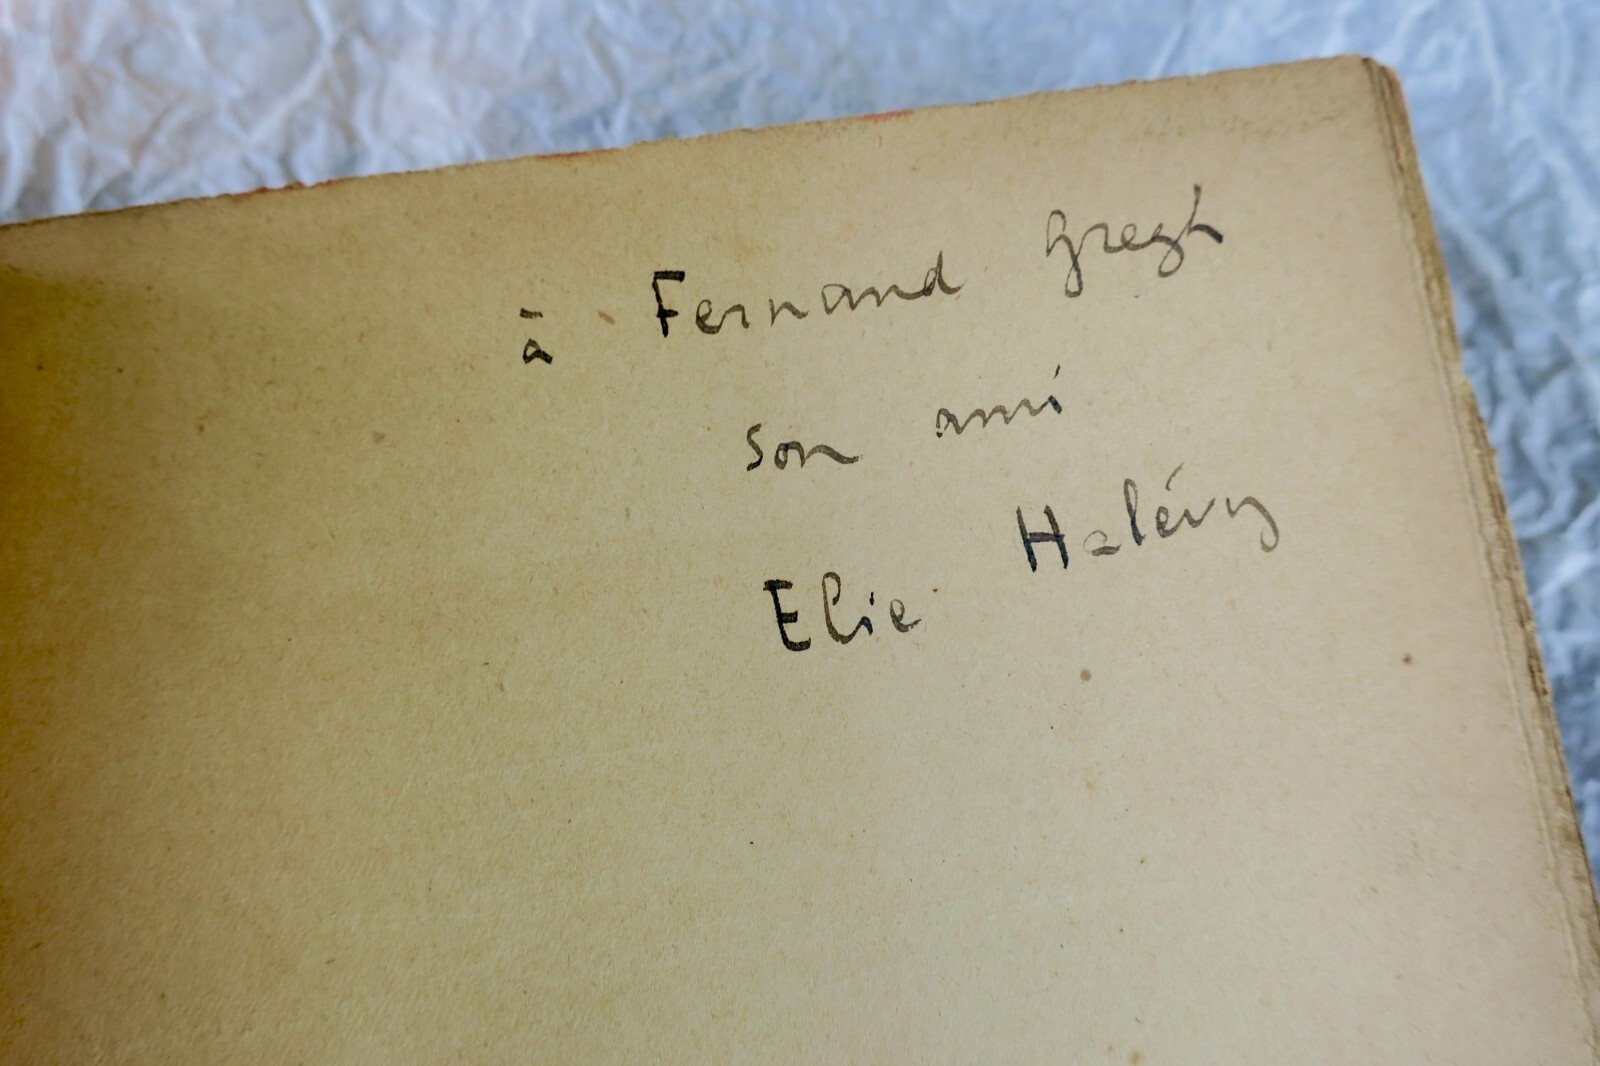 à Fernand Gregh
son ami
Elie Halévy